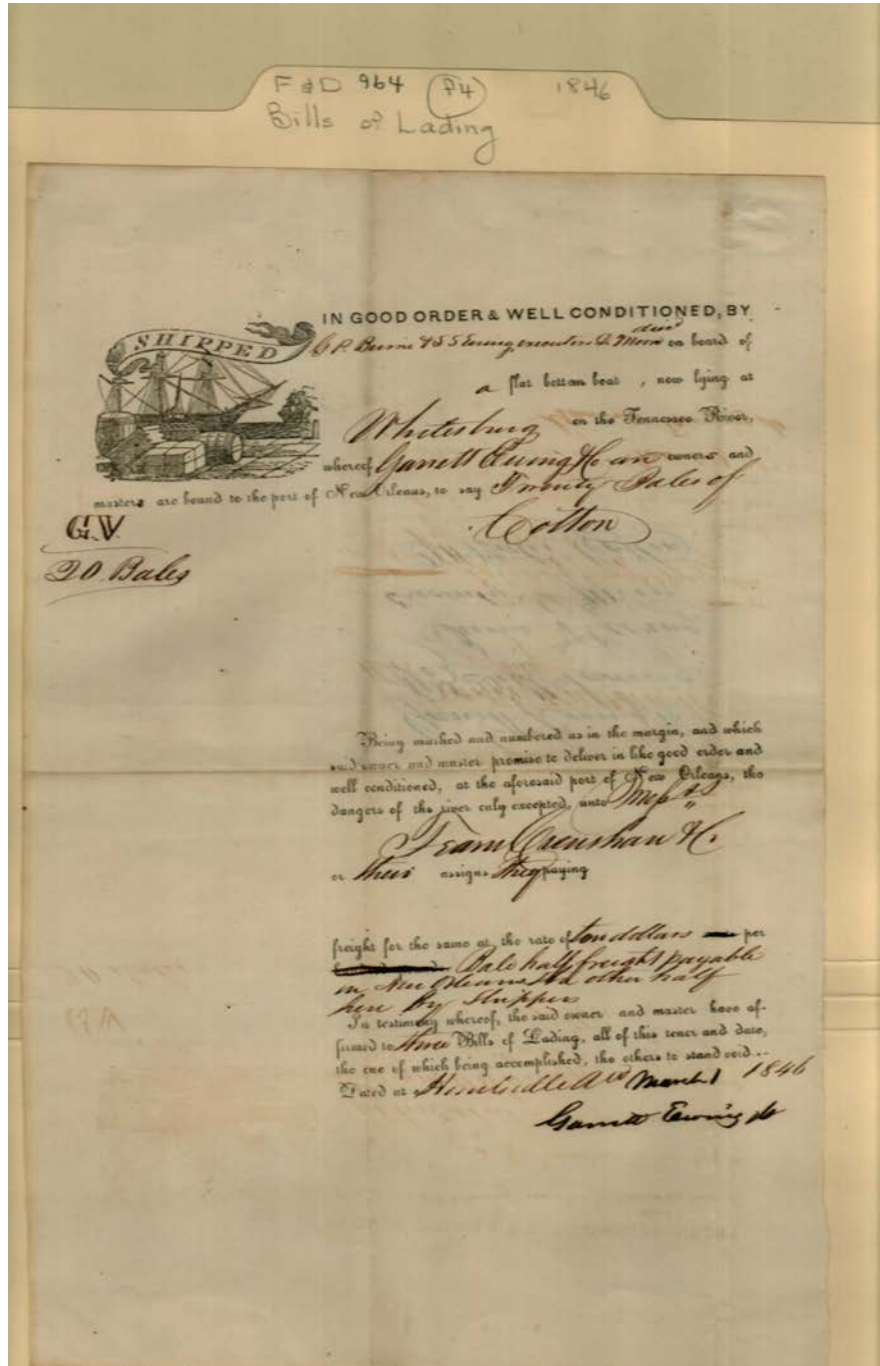 F & D 964 P4 1846
Bills of Lading
SHIPPED
IN GOOD ORDER & WELL CONDITIONED, BY
Ewing decd on board of
a flat bottom boat, now lying at
Whitesburg on the Tennessee River,
whereof Garrett Ewing & Co are owners and
masters are bound to the port of New Orleans, to say Twenty Bales of
Cotton
G.V.
20 Bales
Being marked and numbered as in the margin, and which
said owner and master promise to deliver in like good order and
well conditioned, at the aforesaid port of New Orleans, the
dangers of the river only excepted, unto Messrs
Crenshaw & Co.
or their assigns they paying
freight for the same at the rate of dollars per
Bale half freight payable
in New Orleans other half
here By Shippers
In testimony whereof, the said owner and master have af-
firmed to three Bills of Lading, all of this tenor and date,
the one of which being accomplished, the others to stand void...
Dated at Huntsville Ala March 1 1846
Garrett Ewing & Co